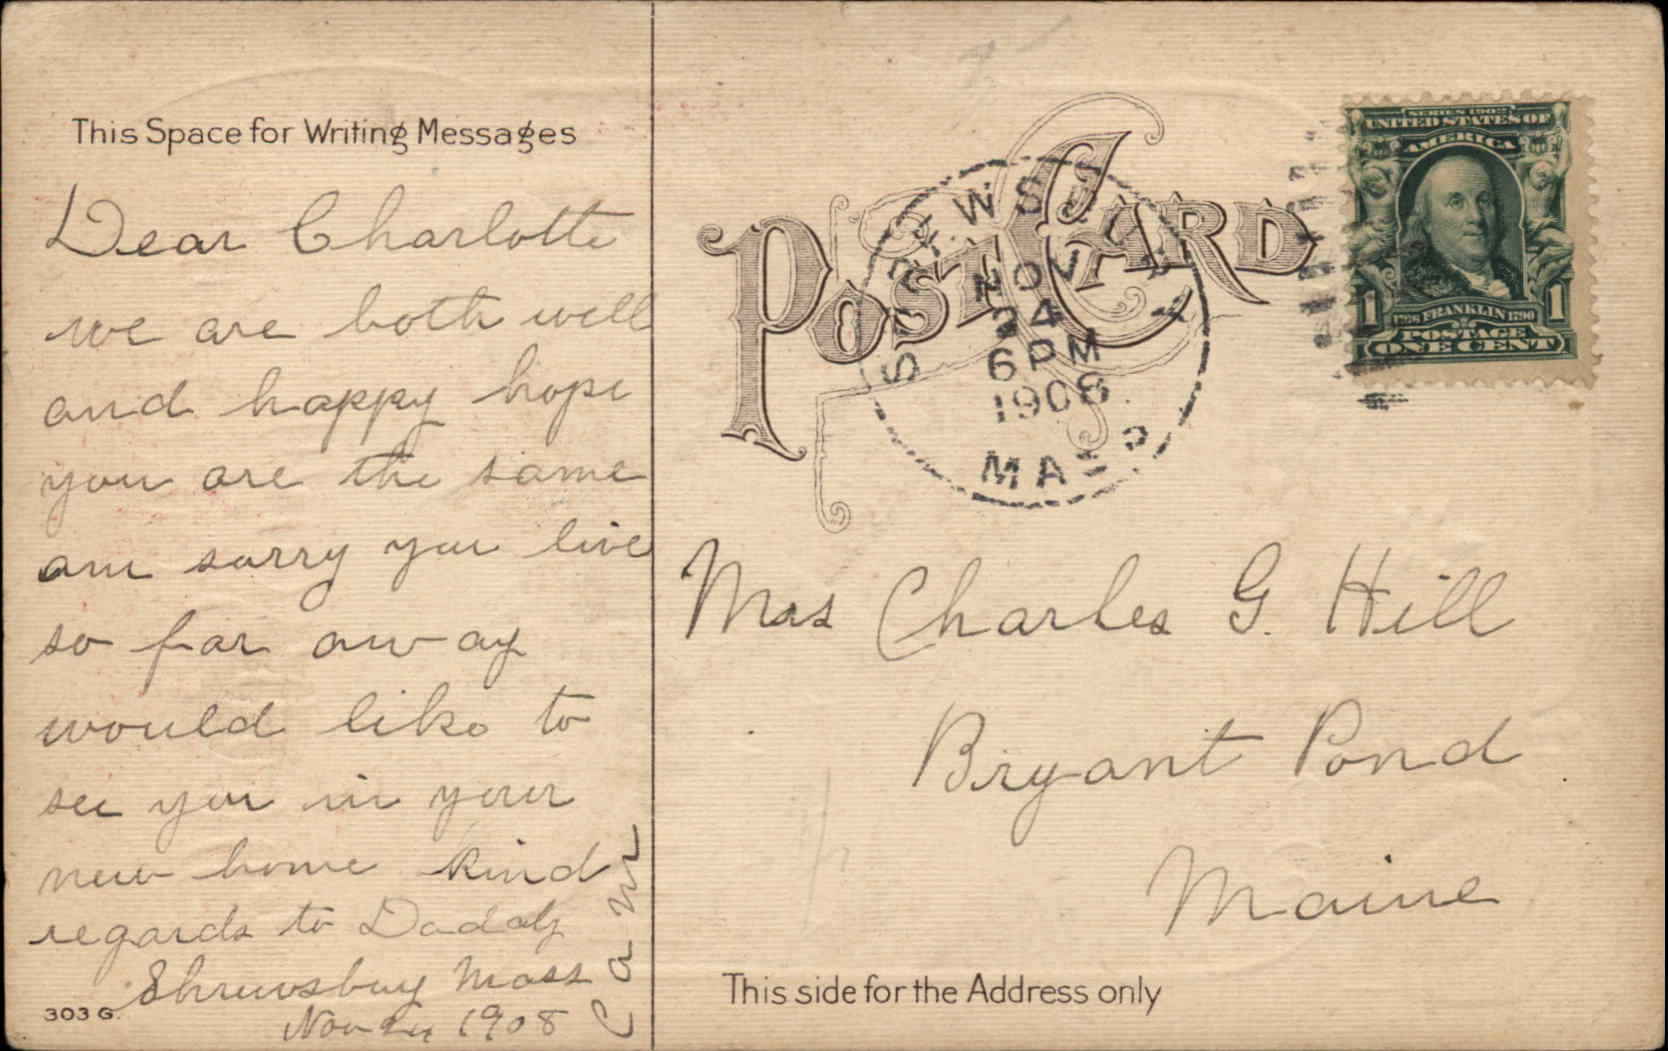 This Space for Writing Messages
Dear Charlotte
we are both well
and happy hope
you are the same
am sorry you live
so far away
would like to
see you in your
new home kind
regards to Dadaly
Shrewsbury Mass
Nov 24 1908
303 G.
POST CARD
SHREWSBURY
NOV
24
6 PM
1908
MASS
SERIES 1902
UNITED STATES OF
AMERICA
1 1706 FRANKLIN 1790 1
POSTAGE
ONE CENT
Mrs Charles G. Hill
Bryant Pond
Maine
This side for the Address only